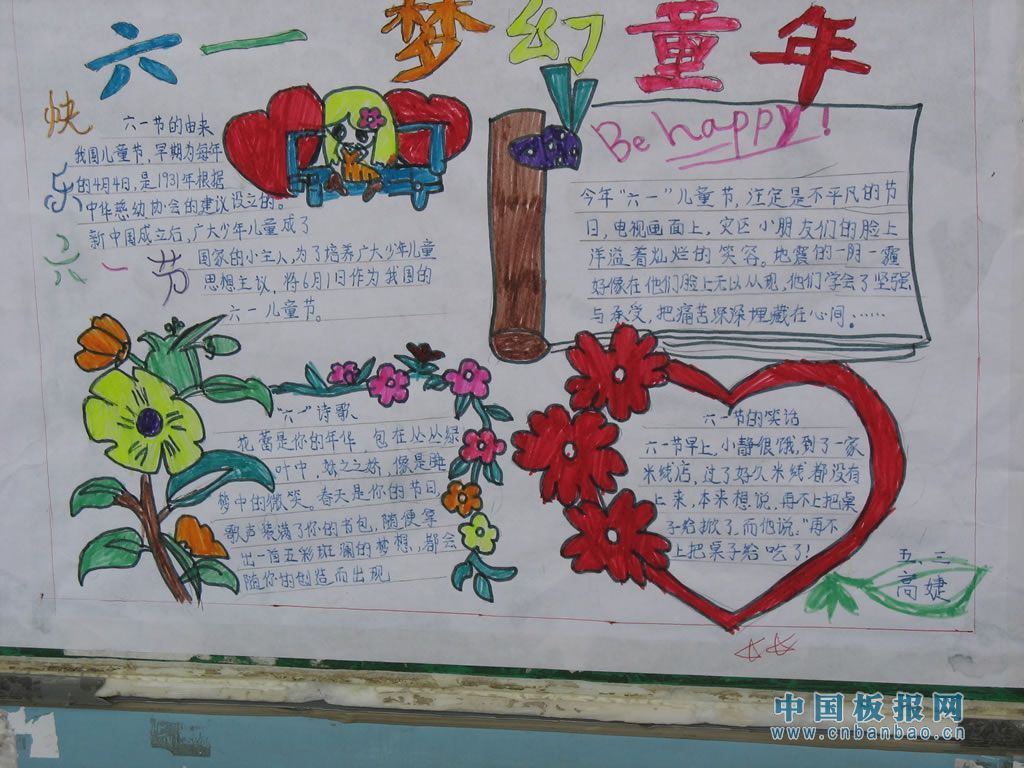 六一梦幻童年
快
乐
六
一
节
六一节的由来
我国儿童节，早期为每年
的4月4日，是1931年根据
中华慈幼协会的建议设立的。
新中国成立后，广大少年儿童成了
国家的小主人，为了培养广大少年儿童
思想主义，将6月1日作为我国的
六一儿童节。
Be happy!
今年“六一”儿童节，注定是不平凡的节
日，电视画面上，灾区小朋友们的脸上
洋溢着灿烂的笑容。地震的一阴一霾
好像在他们脸上无以从现，他们学会了坚强
与承受，把痛苦深深埋藏在心间。……
“六一”诗歌
花蕾是你的年华 包在丛丛绿
叶中，娇之之娇，像是睡
梦中的微笑。春天是你的节日
歌声装满了你的书包，随便拿
出一首五彩斑斓的梦想，都会
随你的创造而出现
六一节的笑话
六一节早上，小静很饿，到了一家
米线店，过了好久米线都没有
上来，本来想说，再不上把桌
子给掀了，而他说：“再不
上把桌子给吃了！
五、三
高婕
中国板报网
www.cnbanbao.cn